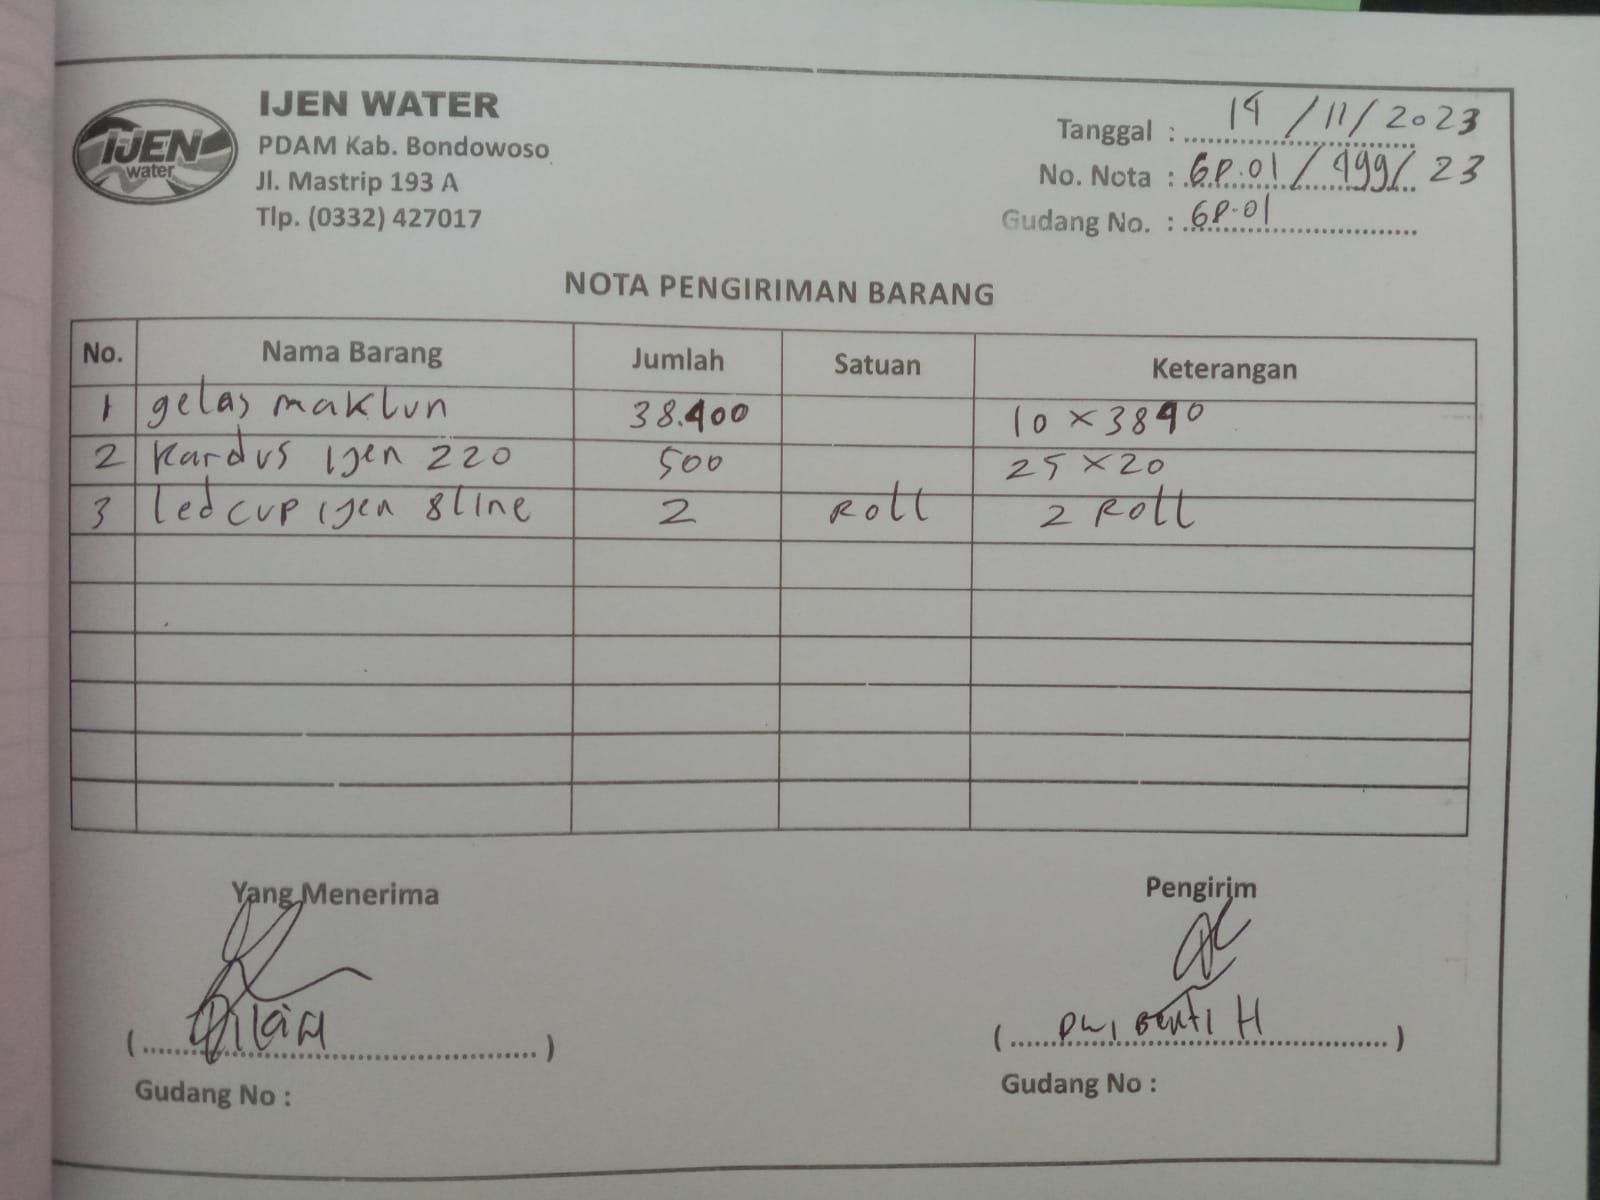 IJEN
water
IJEN WATER
PDAM Kab. Bondowoso
Jl. Mastrip 193 A
Tlp. (0332) 427017
Tanggal : 14 / 11 / 2023
No. Nota : GP.01 / 499 / 23
Gudang No. : GP.01
NOTA PENGIRIMAN BARANG
No. Nama Barang Jumlah Satuan Keterangan
1 gelas maklun 38.400 10 x 3840
2 Kardus ijen 220 500 25 x 20
3 led cup ijen 8 line 2 Roll 2 Roll
Yang Menerima Pengirim
( ) ( Dwi H )
Gudang No : Gudang No :